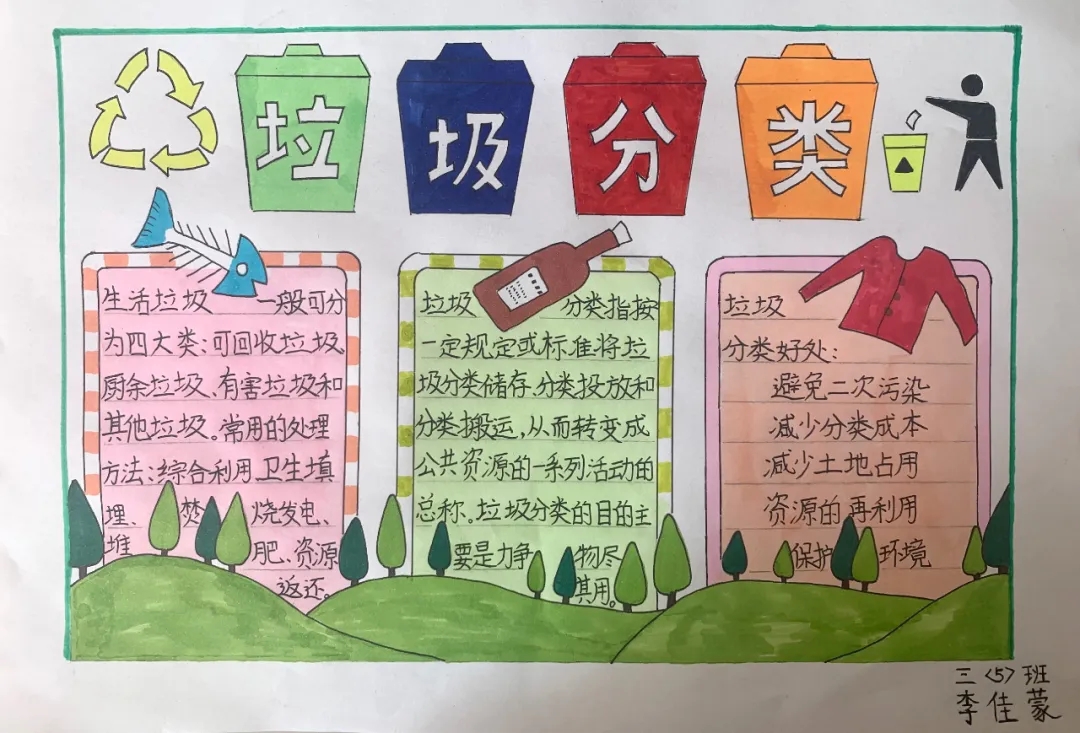 垃圾分类
生活垃圾 一般可分
为四大类:可回收垃圾
厨余垃圾、有害垃圾和
其他垃圾。常用的处理
方法:综合利用卫生填
埋、焚烧发电、
堆肥、资源
返还。
垃圾 分类指按
一定规定或标准将垃
圾分类储存、分类投放和
分类搬运,从而转变成
公共资源的一系列活动的
总称。垃圾分类的目的主
要是力争物尽
其用。
垃圾
分类好处:
避免二次污染
减少分类成本
减少土地占用
资源的再利用
保护环境
三〈5〉班
李佳蒙